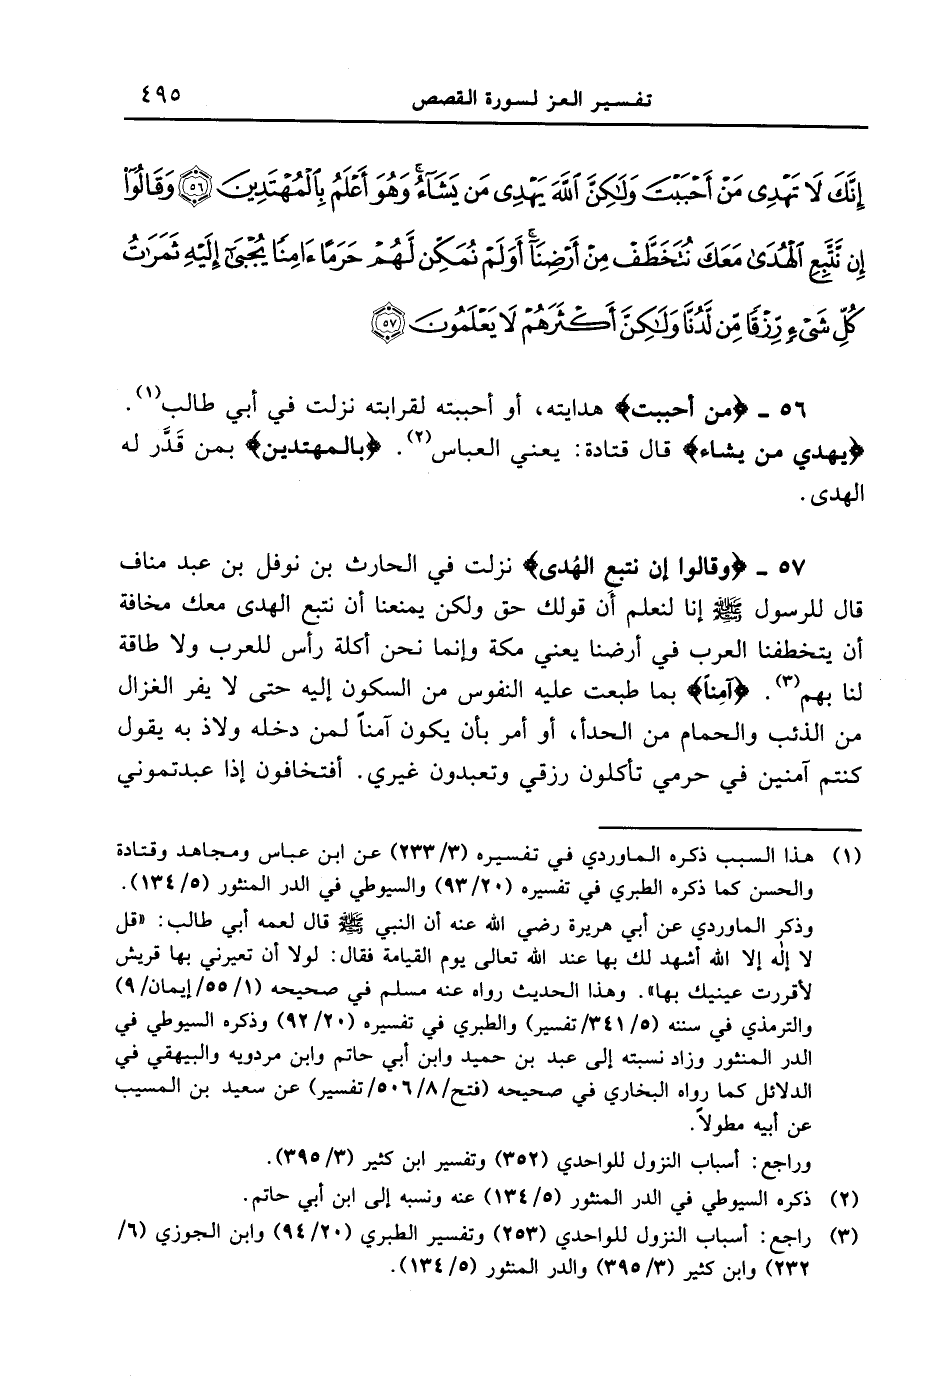 تفسير العز لسورة القصص ٤٩٥
إِنَّكَ لَا تَهْدِى مَنْ أَحْبَبْتَ وَلَٰكِنَّ ٱللَّهَ يَهْدِى مَن يَشَآءُ ۚ وَهُوَ أَعْلَمُ بِٱلْمُهْتَدِينَ ٥٦ وَقَالُوٓا۟
إِن نَّتَّبِعِ ٱلْهُدَىٰ مَعَكَ نُتَخَطَّفْ مِنْ أَرْضِنَآ ۚ أَوَلَمْ نُمَكِّن لَّهُمْ حَرَمًا ءَامِنًا يُجْبَىٰٓ إِلَيْهِ ثَمَرَٰتُ
كُلِّ شَىْءٍ رِّزْقًا مِّن لَّدُنَّا وَلَٰكِنَّ أَكْثَرَهُمْ لَا يَعْلَمُونَ ٥٧
٥٦ ـ ﴿من أحببت﴾ هدايته، أو أحببته لقرابته نزلت في أبي طالب(١).
﴿يهدي من يشاء﴾ قال قتادة: يعني العباس(٢). ﴿بالمهتدين﴾ بمن قَدَّر له
الهدى.
٥٧ ـ ﴿وقالوا إن نتبع الهُدى﴾ نزلت في الحارث بن نوفل بن عبد مناف
قال للرسول ﷺ إنا لنعلم أن قولك حق ولكن يمنعنا أن نتبع الهدى معك مخافة
أن يتخطفنا العرب في أرضنا يعني مكة وإنما نحن أكلة رأس للعرب ولا طاقة
لنا بهم(٣). ﴿آمِناً﴾ بما طبعت عليه النفوس من السكون إليه حتى لا يفر الغزال
من الذئب والحمام من الحدأ، أو أمر بأن يكون آمناً لمن دخله ولاذ به يقول
كنتم آمنين في حرمي تأكلون رزقي وتعبدون غيري. أفتخافون إذا عبدتموني
(١) هذا السبب ذكره الماوردي في تفسيره (٢٣٣/٣) عن ابن عباس ومجاهد وقتادة
والحسن كما ذكره الطبري في تفسيره (٩٣/٢٠) والسيوطي في الدر المنثور (١٣٤/٥).
وذكر الماوردي عن أبي هريرة رضي الله عنه أن النبي ﷺ قال لعمه أبي طالب: «قل
لا إله إلا الله أشهد لك بها عند الله تعالى يوم القيامة فقال: لولا أن تعيرني بها قريش
لأقررت عينيك بها». وهذا الحديث رواه عنه مسلم في صحيحه (١/٥٥/إيمان/٩)
والترمذي في سننه (٣٤١/٥/تفسير) والطبري في تفسيره (٩٢/٢٠) وذكره السيوطي في
الدر المنثور وزاد نسبته إلى عبد بن حميد وابن أبي حاتم وابن مردويه والبيهقي في
الدلائل كما رواه البخاري في صحيحه (فتح/٥٠٦/٨/تفسير) عن سعيد بن المسيب
عن أبيه مطولاً.
وراجع: أسباب النزول للواحدي (٣٥٢) وتفسير ابن كثير (٣٩٥/٣).
(٢) ذكره السيوطي في الدر المنثور (١٣٤/٥) عنه ونسبه إلى ابن أبي حاتم.
(٣) راجع: أسباب النزول للواحدي (٢٥٣) وتفسير الطبري (٩٤/٢٠) وابن الجوزي (٦/
٢٣٢) وابن كثير (٣٩٥/٣) والدر المنثور (١٣٤/٥).